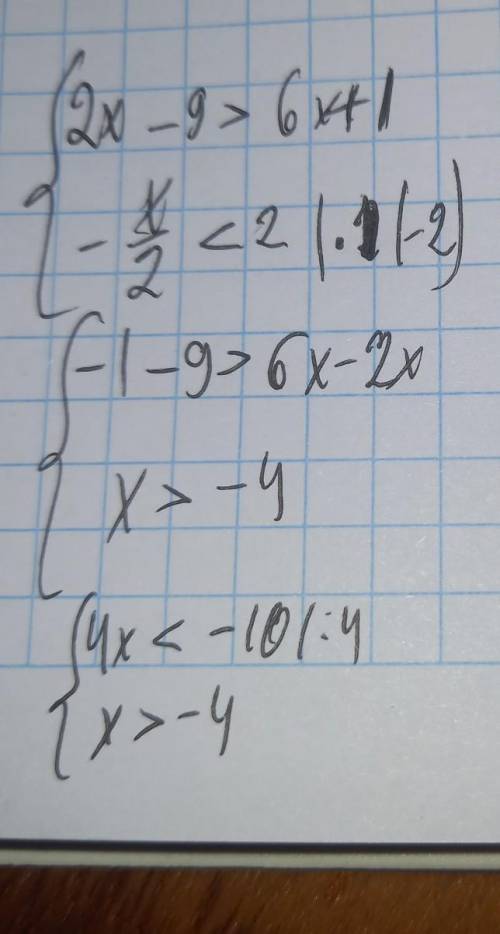 2x - 9 > 6x + 1
- x/2 < 2 | · (-2)
-1 - 9 > 6x - 2x
x > -4
4x < -10 | : 4
x > -4